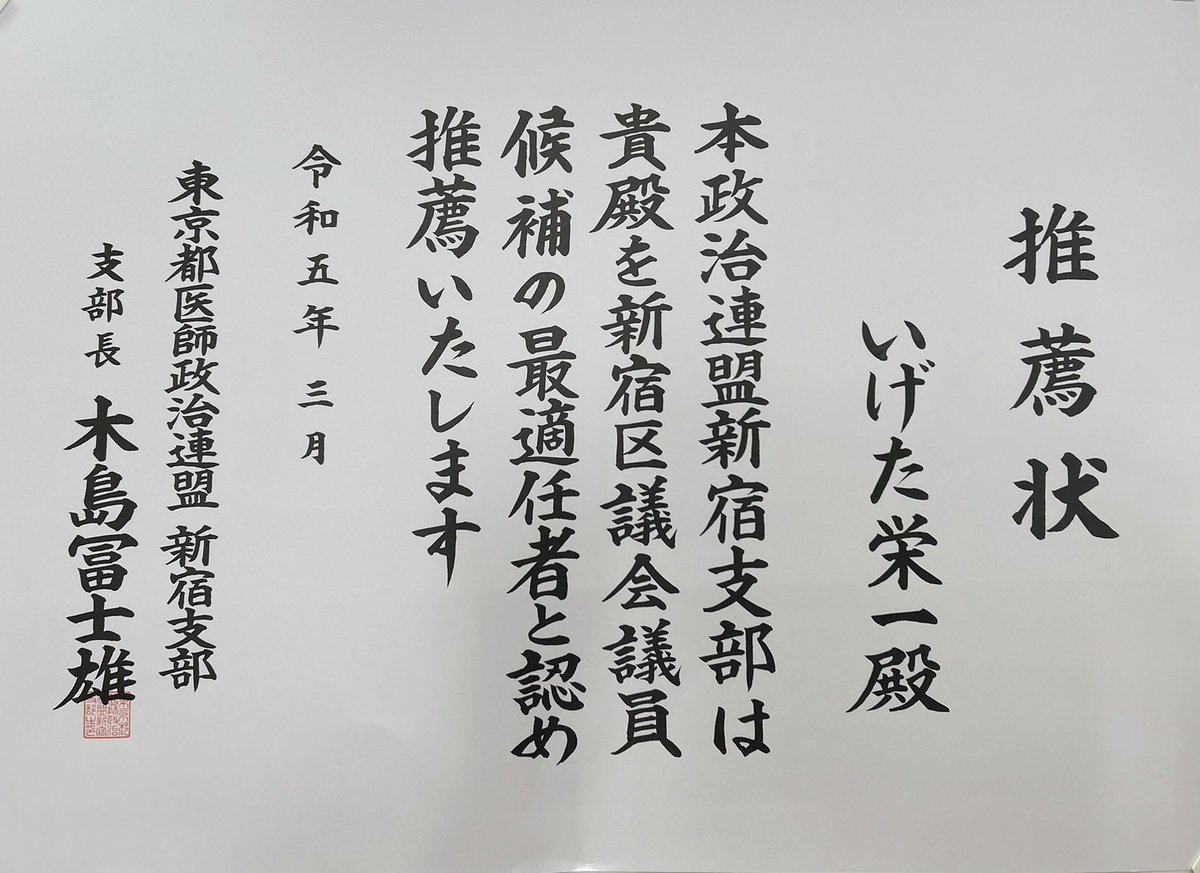 推薦状
いげた栄一殿
本政治連盟新宿支部は
貴殿を新宿区議会議員
候補の最適任者と認め
推薦いたします
令和五年三月
東京都医師政治連盟 新宿支部
支部長 木島冨士雄